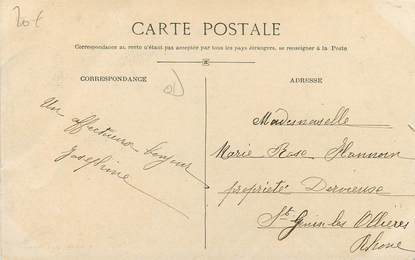 20€
CARTE POSTALE
Correspondance au recto n'était pas acceptée par tous les pays étrangers, se renseigner à la Poste
CORRESPONDANCE
Un affectueux bonjour
Joséphine
ADRESSE
Mademoiselle
Marie Rose
propriété Dervieuse
St Genis les Ollières
Rhône